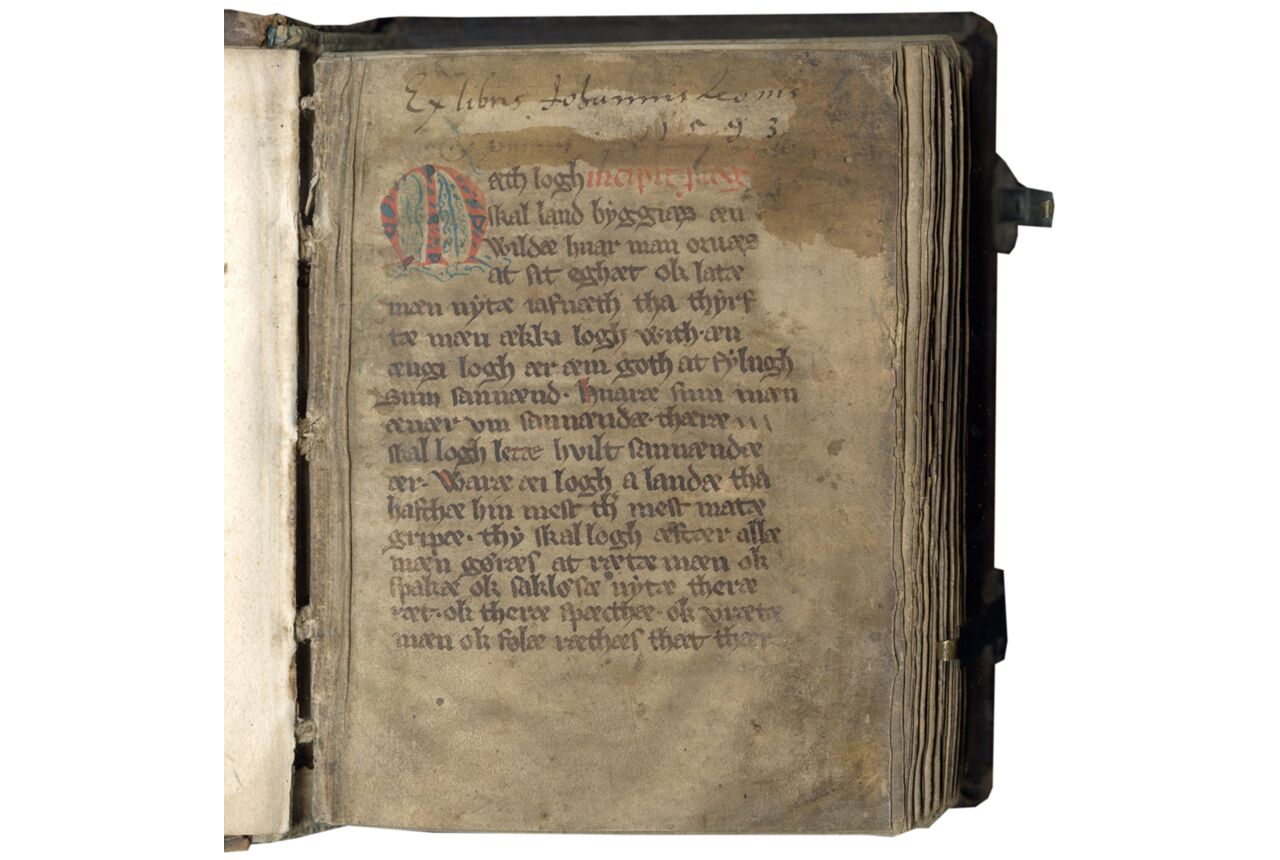 Ex libris Johannis Leonis
1593
Mæth logh incipit
skal land byggiæs æn
wildæ huar man oruæs
at sit eghæt ok latæ
mæn nytæ iafnæth tha thyrf
tæ mæn ækki logh with· æn
ængi logh ær æm goth at fylugh
sum sannænd· huaræ sum mæn
æuær um sannændæ· thæræ
skal logh letæ hvilt sannændæ
ær· Waræ æi logh a landæ tha
hafthæ hin mest thʳ mest matæ
gripæ· thy skal logh æftær allæ
mæn gøræs at rætæ mæn ok
spakæ ok sakløsæ nytæ theræ
ræt· ok theræ spæcthæ· ok vrætæ
mæn ok folæ ræthæs thæt thær